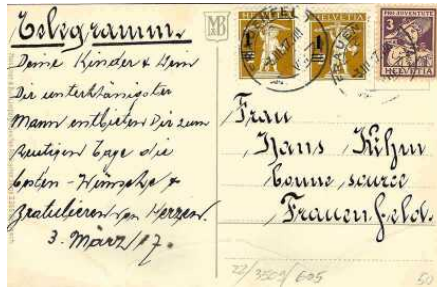 Telegramm.
Deine Kinder & Dein
Dir unterthänigster
Mann entbieten Dir zum
heutigen Tage die
besten - Wünsche &
gratulieren von Herzen.
3. März 17.
MB
HELVETIA
HELVETIA
PRO JUVENTUTE
3
HELVETIA
Frau
Hans
bonne source
Frauenfeld.
22/3509/605
50